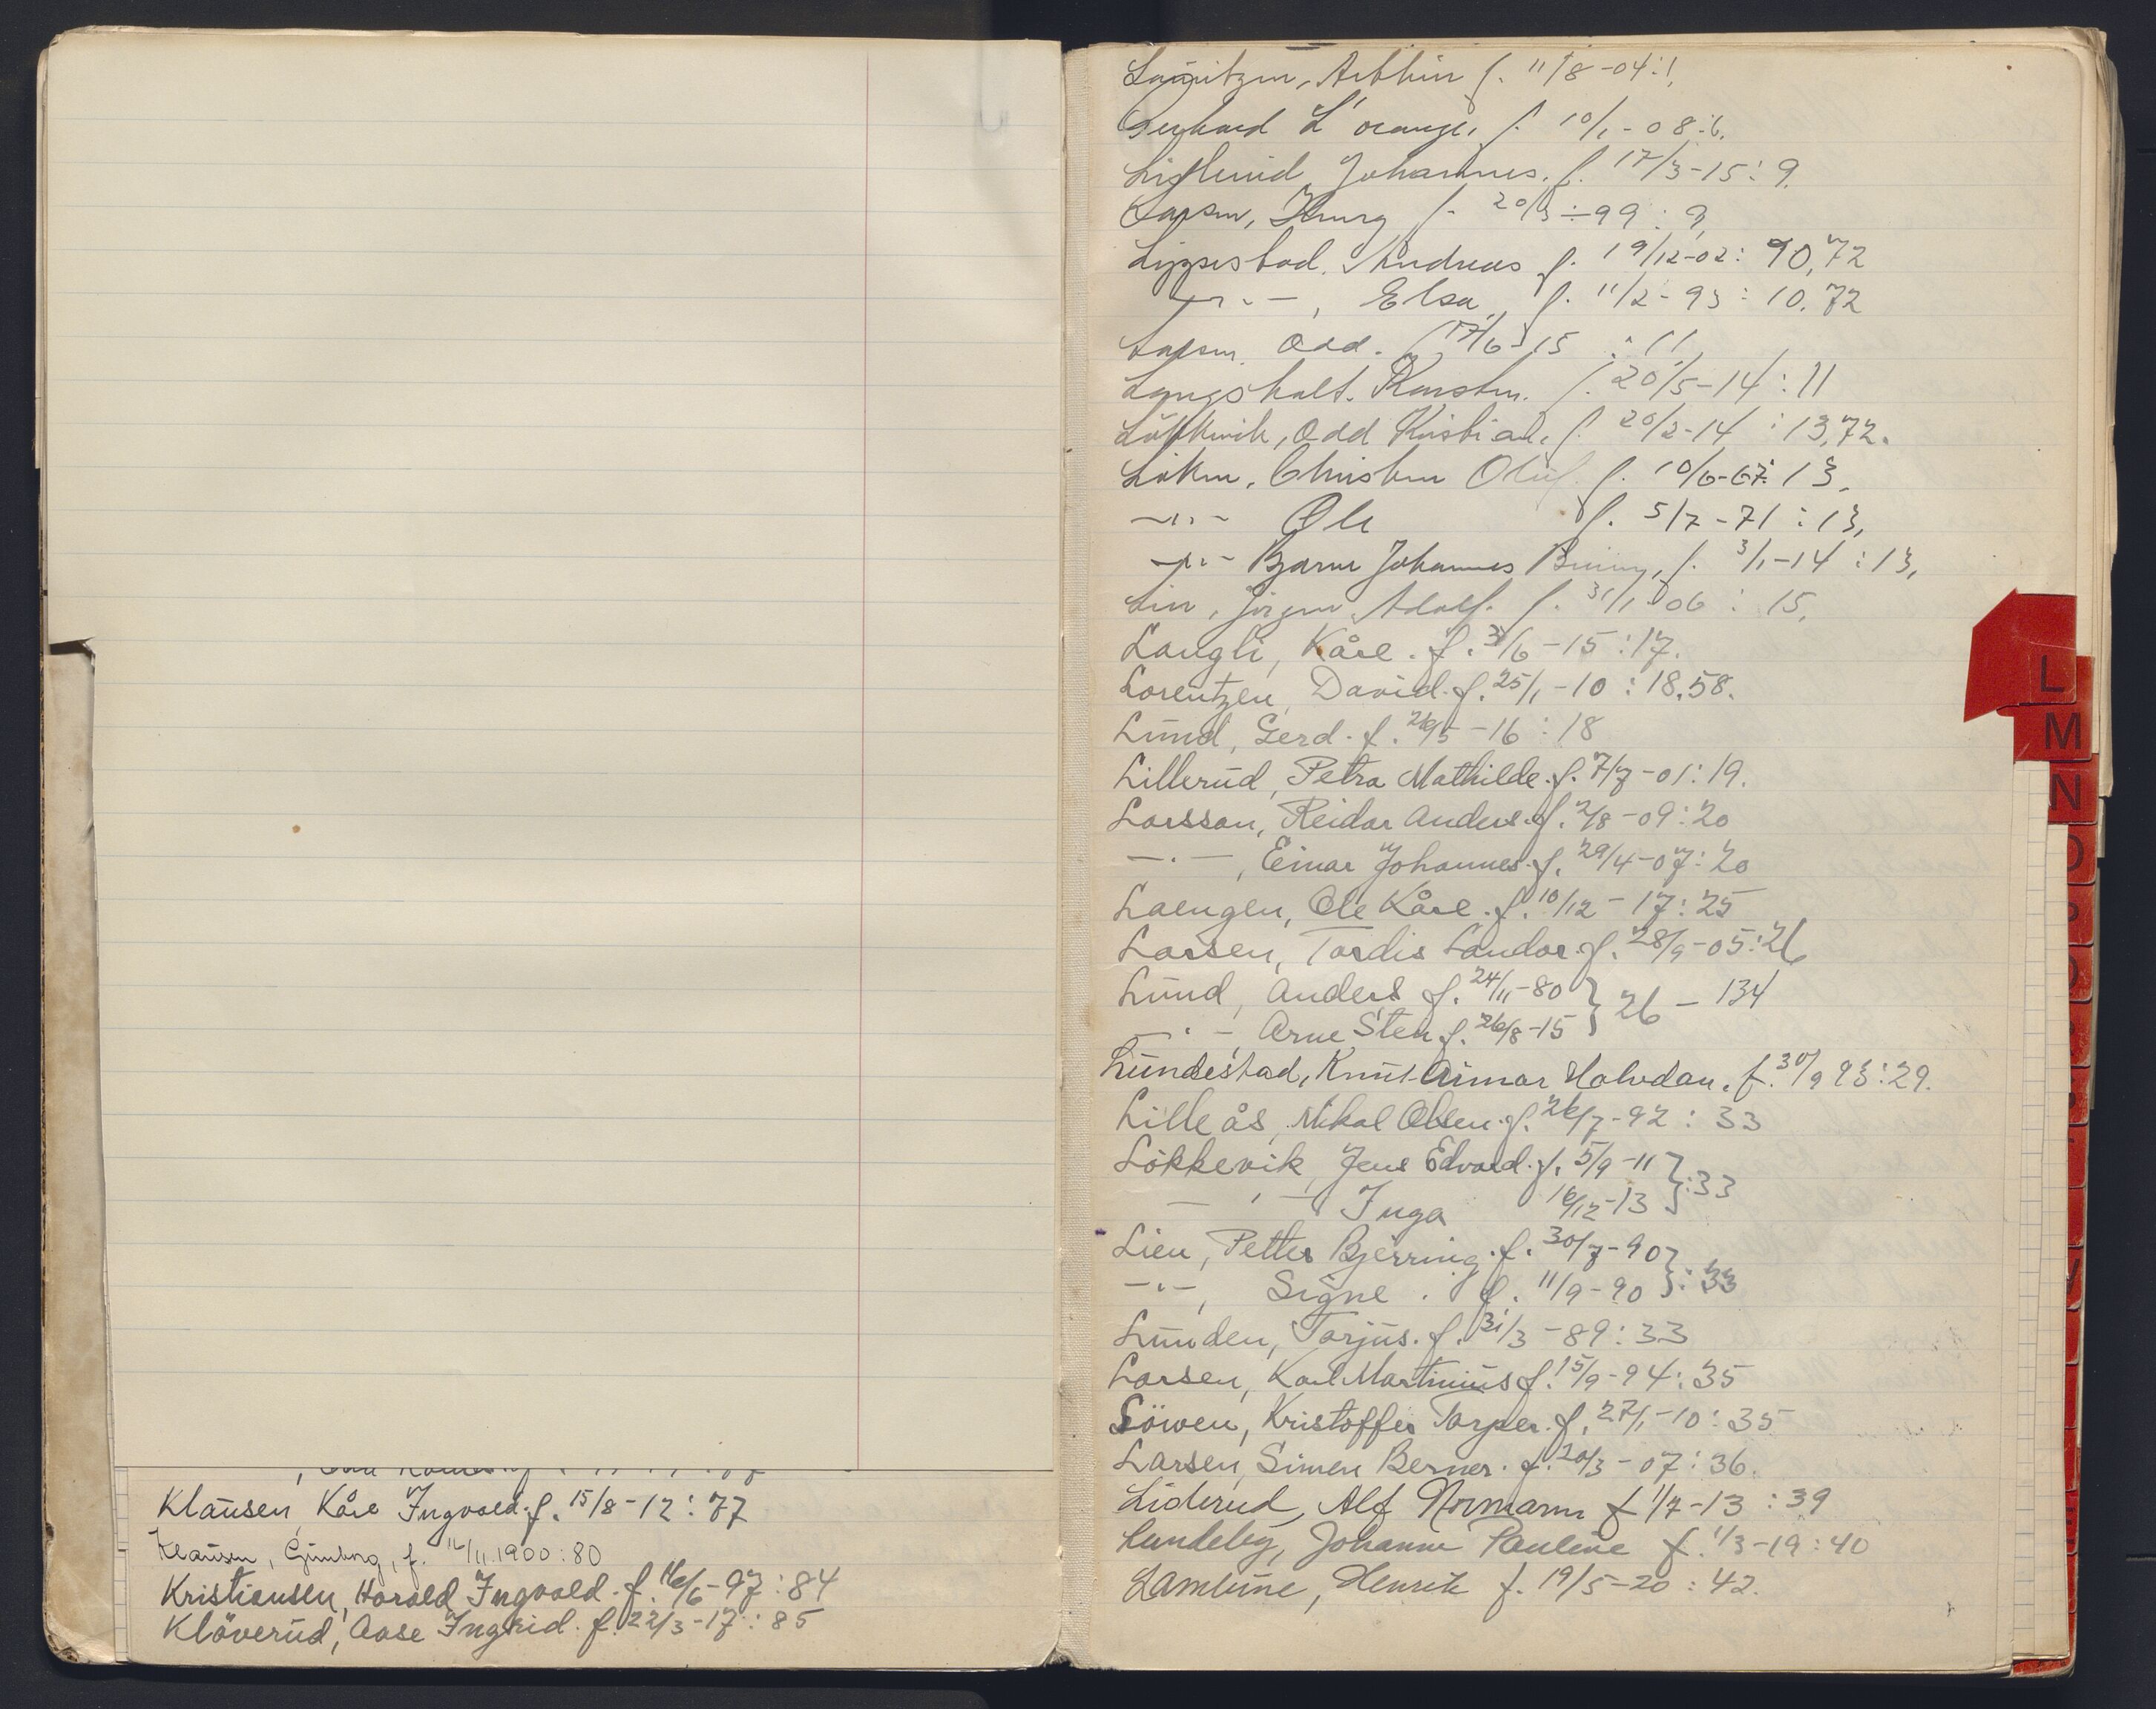 Klausen, Kåre Ingvald. f. 15/8-12: 77
Klausen, Gunborg, f. 12/11.1900: 80
Kristiansen, Harald Ingvald. f. 16/6-97: 84
Klöverud, Aase Ingrid. f. 22/3-17: 85
Lauritzen, Arthur f. 11/8-04: 1.
Gerhard L'orange, f. 10/1-08: 6.
Johannes. f. 17/3-15: 9.
Larsen, f. 20/3-99: 9,
Lippestad, Andreas f. 19/12-02: 90,72
-"-, Elsa, f. 11/2-93: 10,72
Larsen, Odd. f. 17/6-15: 11
Langsholt, Karsten. f. 20/5-14: 11
Lökkevik, Odd Kristian, f. 20/2-14: 13,72.
Löken, Christen Oluf. f. 10/6-67: 13.
-"- Ole f. 5/7-71: 13,
-"- Bjarne Johannes f. 3/1-14: 13,
Lie, Jörgen Adolf. f. 31/1-06: 15,
Laugli, Kåre. f. 3/6-15: 17.
Lorentzen, David. f. 25/1-10: 18,58.
Lund, Gerd. f. 26/5-16: 18
Lillerud, Petra Mathilde. f. 7/7-01: 19.
Larsson, Reidar Anders. f. 2/8-09: 20
-"-, Einar Johannes. f. 29/4-07: 20
Laengen, Ole Kåre. f. 10/12-17: 25
Larsen, Tordis Landor. f. 28/9-05: 26
Lund, Anders f. 24/11-80 } 26 - 134
-"-, Arne Sten f. 26/8-15
Lundestad, Knut Aimar Halvdan. f. 30/9 93: 29.
Lilleås, Mikal Olsen. f. 26/7-92: 33
Lökkevik, Jens Edvard. f. 5/9-11 } :33
-"- Inga 16/12-13
Lien, Petter Bjerring. f. 30/7-90 } :33
-"-, Signe. f. 11/9-90
Lunden, Tarjus. f. 31/3-89: 33
Larsen, Karl Martinius f. 15/9-94: 35
Löwen, Kristoffer Torper. f. 27/1-10: 35
Larsen, Simen Berner. f. 20/3-07: 36.
Liderud, Alf Normann f 1/7-13: 39
Lundeby, Johanne Pauline f. 1/3-19: 40
Henrik f. 19/5-20: 42.